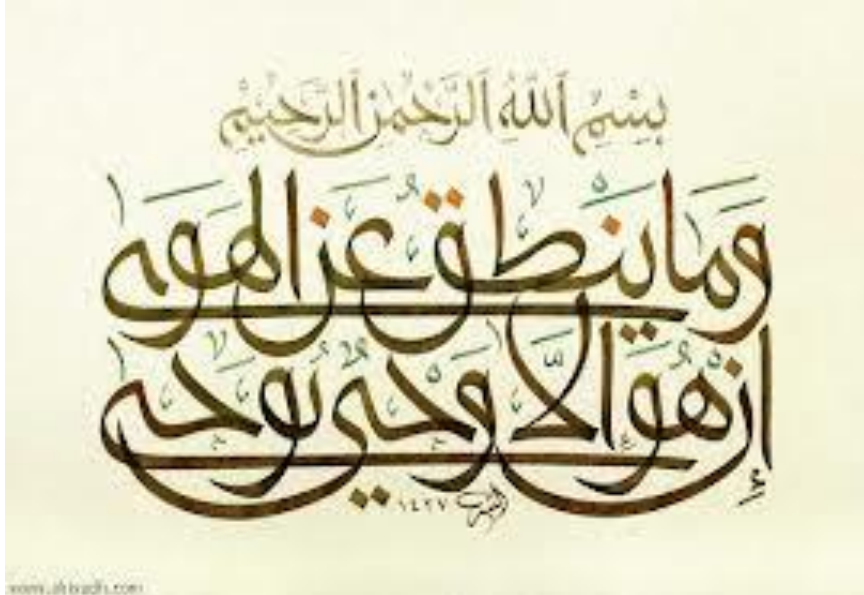 بِسْمِ اللَّهِ الرَّحْمٰنِ الرَّحِيْمِ
وَمَا يَنْطِقُ عَنِ الْهَوٰى
إِنْ هُوَ إِلَّا وَحْيٌ يُوْحٰى
١٤٢٧